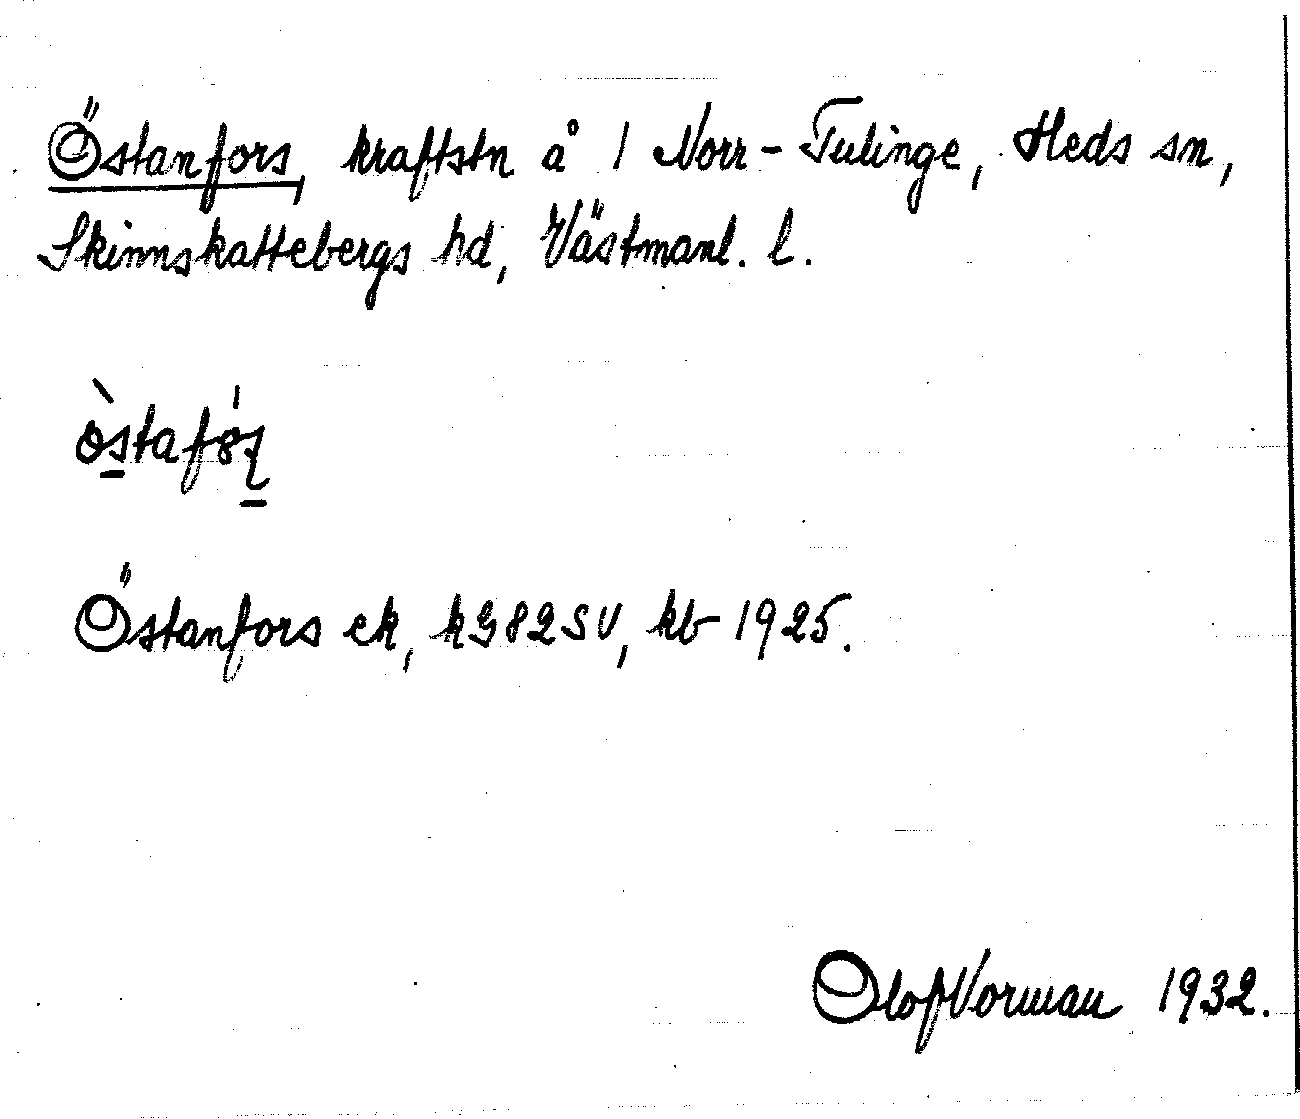 Östanfors, kraftstn å 1 Norr-Tulinge, Heds sn,
Skinnskattebergs hd, Västmanl. l.
Östanfors ek, k 982 SV, kb 1925.
Olof Vorman 1932.